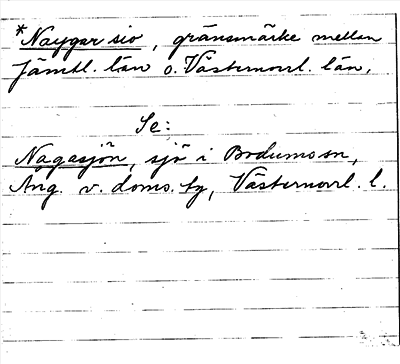 *Naygar sio, gränsmärke mellan
Jämtl. län o. Västernorrl. län,
Se:
Nagasjön, sjö i Bodums sn,
Ång. v. doms. tg, Västernorrl. l.